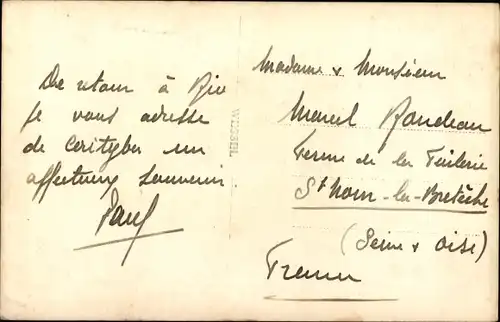 De retour à Rio
je vous adresse
de Corityba un
affectueux souvenir
Paul
WESSEL
Madame & Monsieur
Marcel Rondeau
Ferme de la Tuilerie
St Nom-la-Bretèche
(Seine & Oise)
France